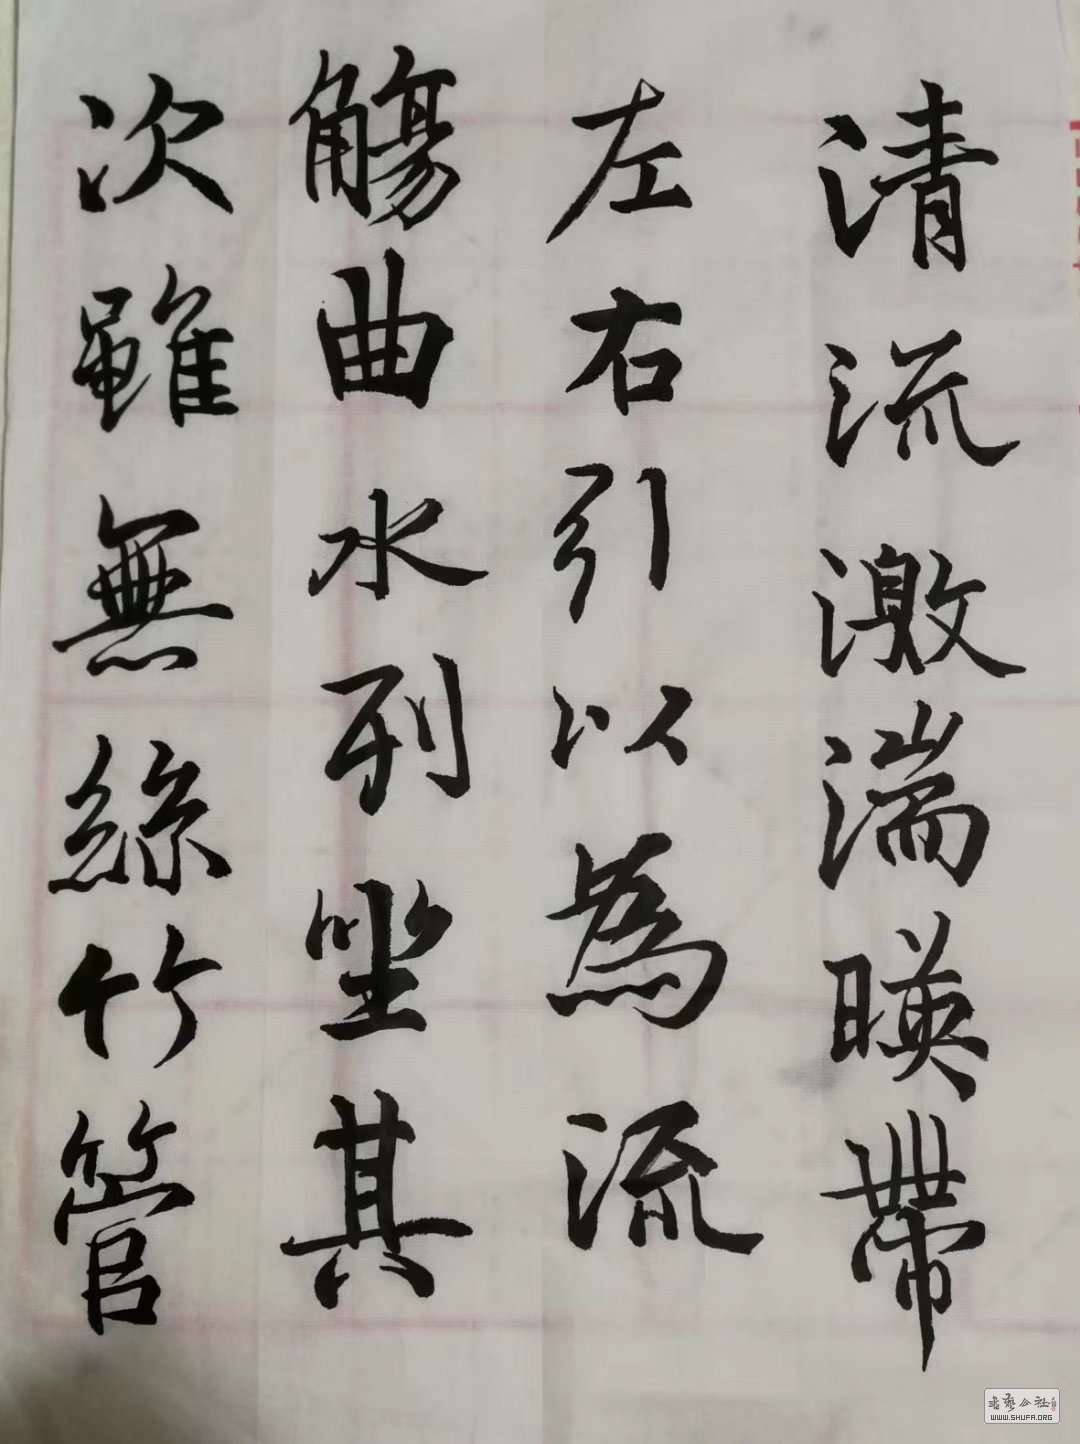 清流激湍暎帶
左右引以為流
觴曲水列坐其
次雖無絲竹管
WWW.SHUFA.ORG